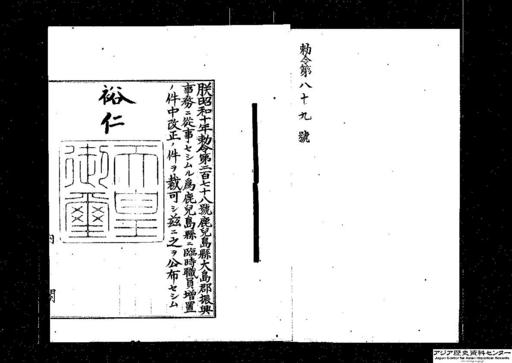 勅令第八十九號
朕昭和十年勅令第二百七十八號鹿兒島縣大島郡振興
事務ニ從事セシムル爲鹿兒島縣ニ臨時職員增置
ノ件中改正ノ件ヲ裁可シ茲ニ之ヲ公布セシム
裕仁
天皇
御璽
内閣
アジア歴史資料センター
Japan Center for Asian Historical Records